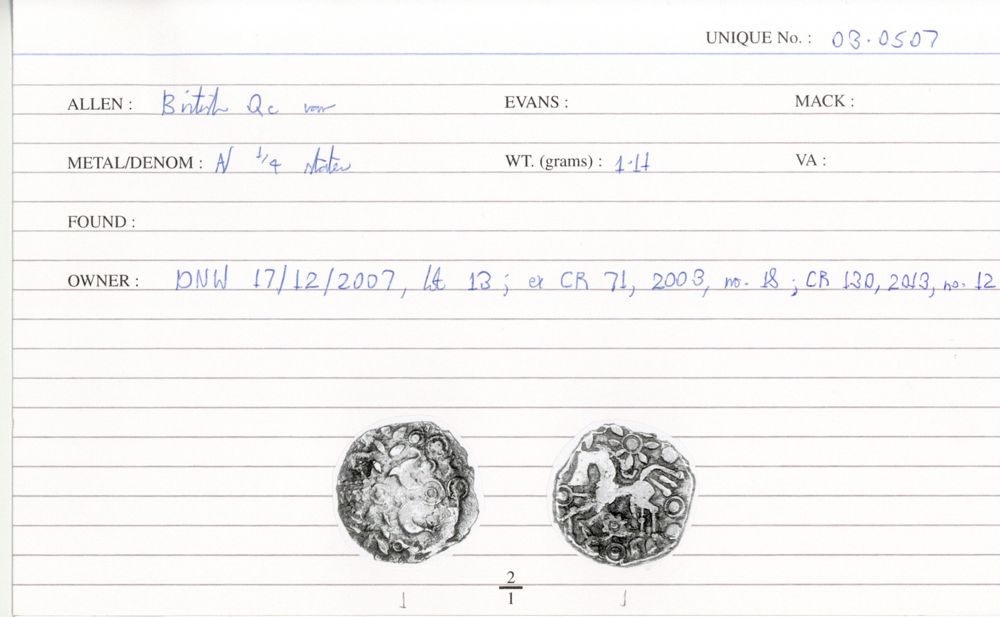 UNIQUE No. : 03·0507
ALLEN : British Qc var EVANS : MACK :
METAL/DENOM : N 1/4 stater WT. (grams) : 1·14 VA :
FOUND :
OWNER : DNW 17/12/2007, lot 13; ex CR 71, 2003, no. 18; CR 130, 2013, no. 12
2
1